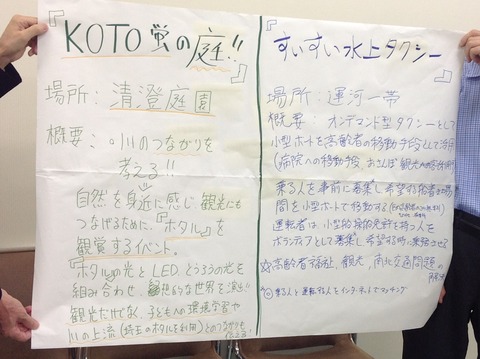 『KOTO 蛍の庭!!』
場所：清澄庭園
概要：◦川のつながりを
考える!!
自然を身近に感じ観光にも
つなげるために、『ホタル』を
観賞するイベント。
『ホタルの光とLED、とうろうの光を
組み合わせ、幻想的な世界を演出
観光だけでなく、子どもへの環境学習や
川の上流(埼玉のホタルを利用)とのつながりも
『すいすい水上タクシー
場所：運河一帯
概要：オンデマンド型タクシーとして
小型ボートを高齢者の移動手段として活用
(病院への移動手段、おさんぽ観光
乗る人を事前に募集し希望する
間を小型ボートで移動する
運転者は、小型船舶免許を持つ人を
ボランティアとして募集し希望する時に乗船させる
☆高齢者福祉、観光、南北交通問題の
◎乗る人と運転する人をインターネットでマッチング